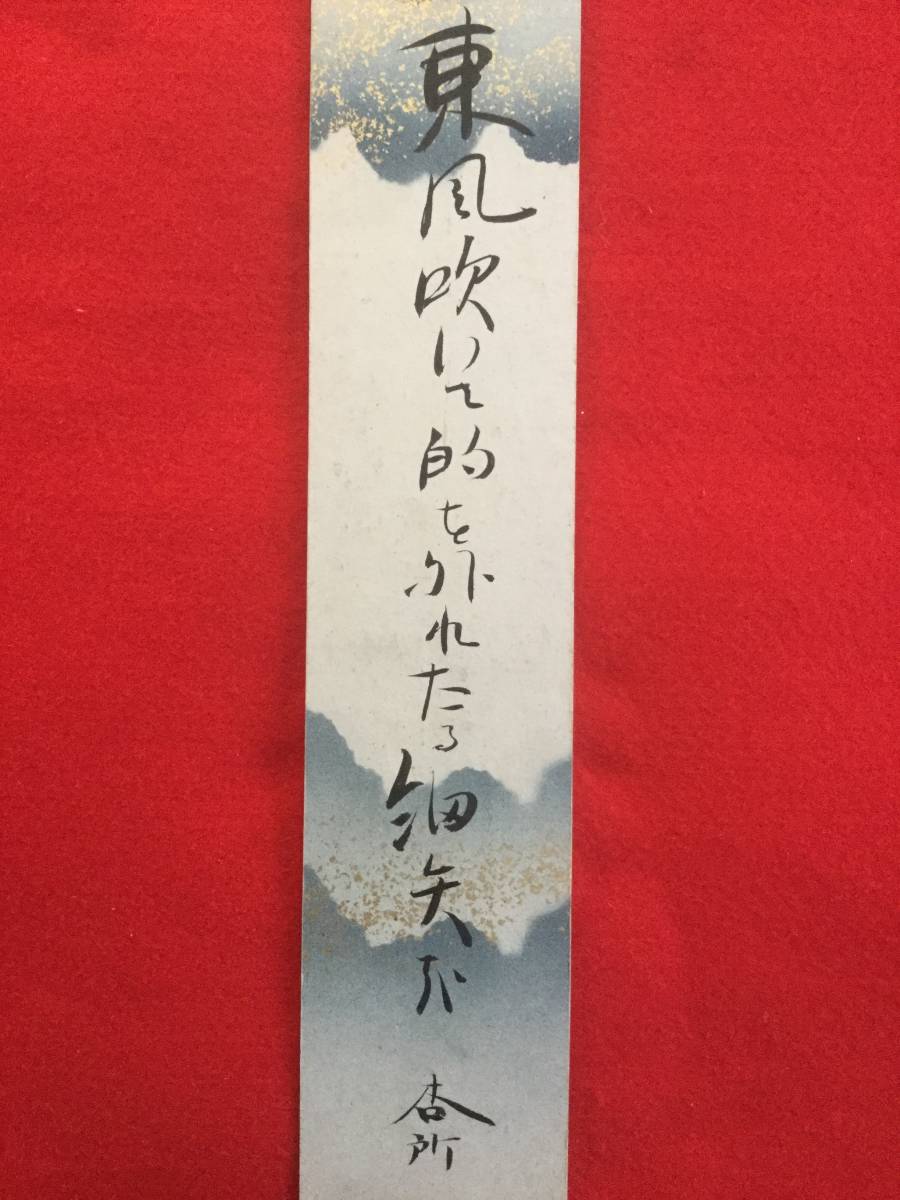 東風吹いて的を外れたる細矢哉
杏所